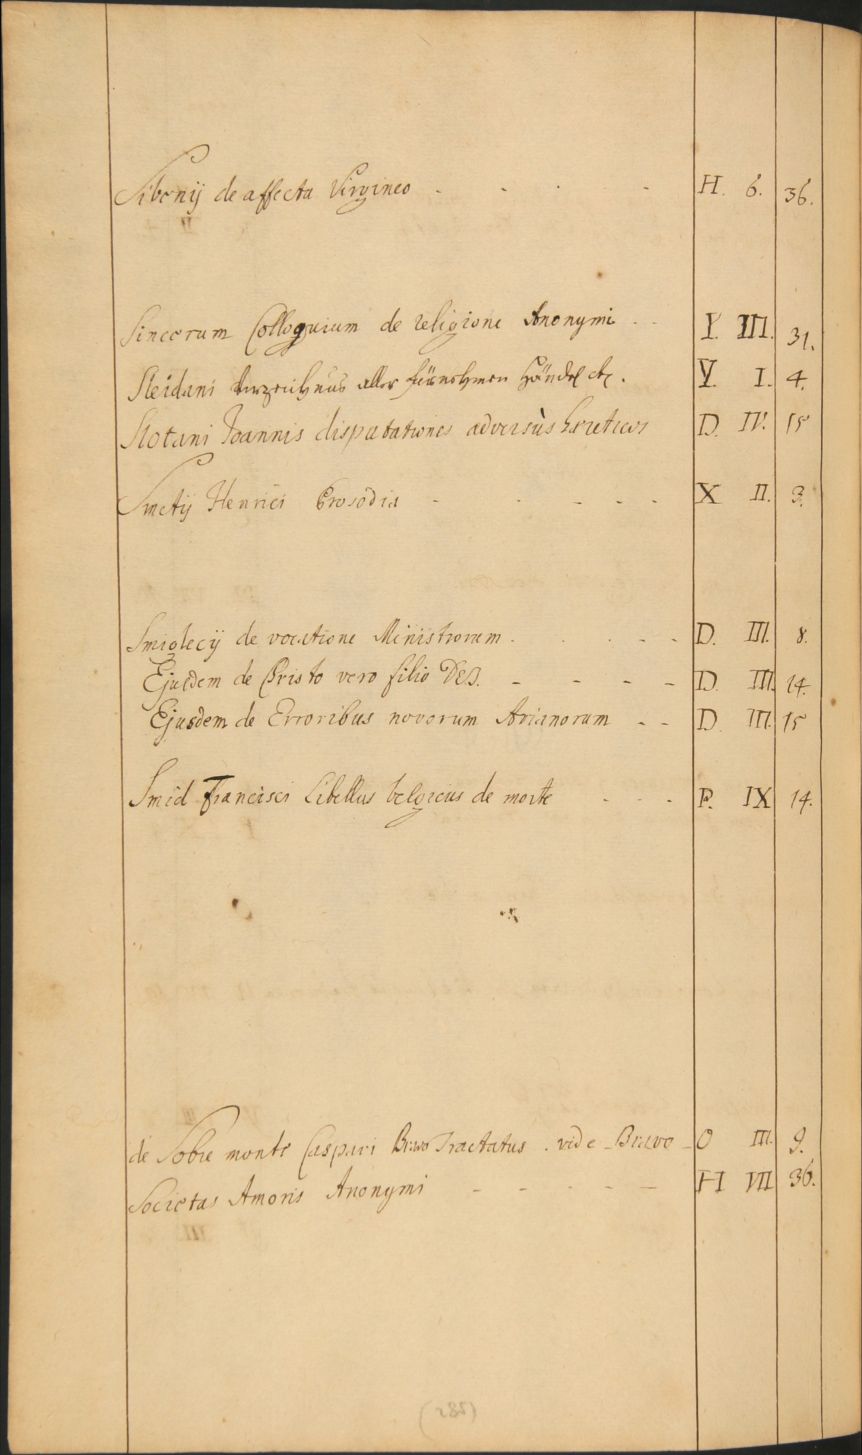 Sibonij de affecta Virgineo - - - - H. 6. 36.
Sincerum Colloquium de religione Anonymi - - Y. III. 31.
Sleidani Verzeichnus aller fürnehmen Händel etc. Y. I. 4.
Slotani Joannis disputationes adversùs hæreticos D. IV. 15
Smetij Henrici Prosodia - - - - - X II. 3.
Smiglecij de vocatione Ministrorum - - - - - D. III. 8.
Ejusdem de Christo vero filio DEI. - - - - D. III. 14.
Ejusdem de Erroribus novorum Arianorum - - D. III. 15
Smid Francisci Libellus belgicus de morte - - - P. IX 14.
de Sobre monte Caspari Bravo Tractatus . vide - Bravo - O III. 9.
Societas Amoris Anonymi - - - - - H VII 36.
(285)